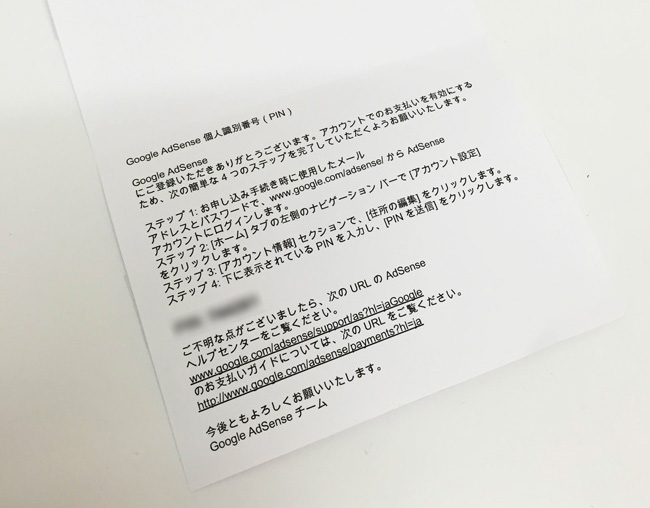 Google AdSense 個人識別番号 ( PIN )
Google AdSense
にご登録いただきありがとうございます。アカウントでのお支払いを有効にする
ため、次の簡単な 4 つのステップを完了していただくようお願いいたします。
ステップ 1: お申し込み手続き時に使用したメール
アドレスとパスワードで、www.google.com/adsense/ から AdSense
アカウントにログインします。
ステップ 2: [ホーム] タブの左側のナビゲーション バーで [アカウント設定]
をクリックします。
ステップ 3: [アカウント情報] セクションで、[住所の編集] をクリックします。
ステップ 4: 下に表示されている PIN を入力し、[PIN を送信] をクリックします。
ご不明な点がございましたら、次の URL の AdSense
ヘルプセンターをご覧ください。
www.google.com/adsense/support/as?hl=jaGoogle
のお支払いガイドについては、次の URL をご覧ください。
http://www.google.com/adsense/payments?hl=ja
今後ともよろしくお願いいたします。
Google AdSense チーム